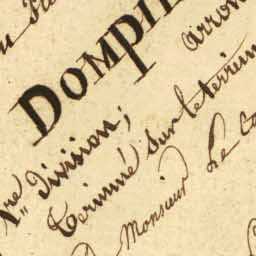 DOMPI
arron
1re division;
Terminé sur le terrein
Monsieur Le Co